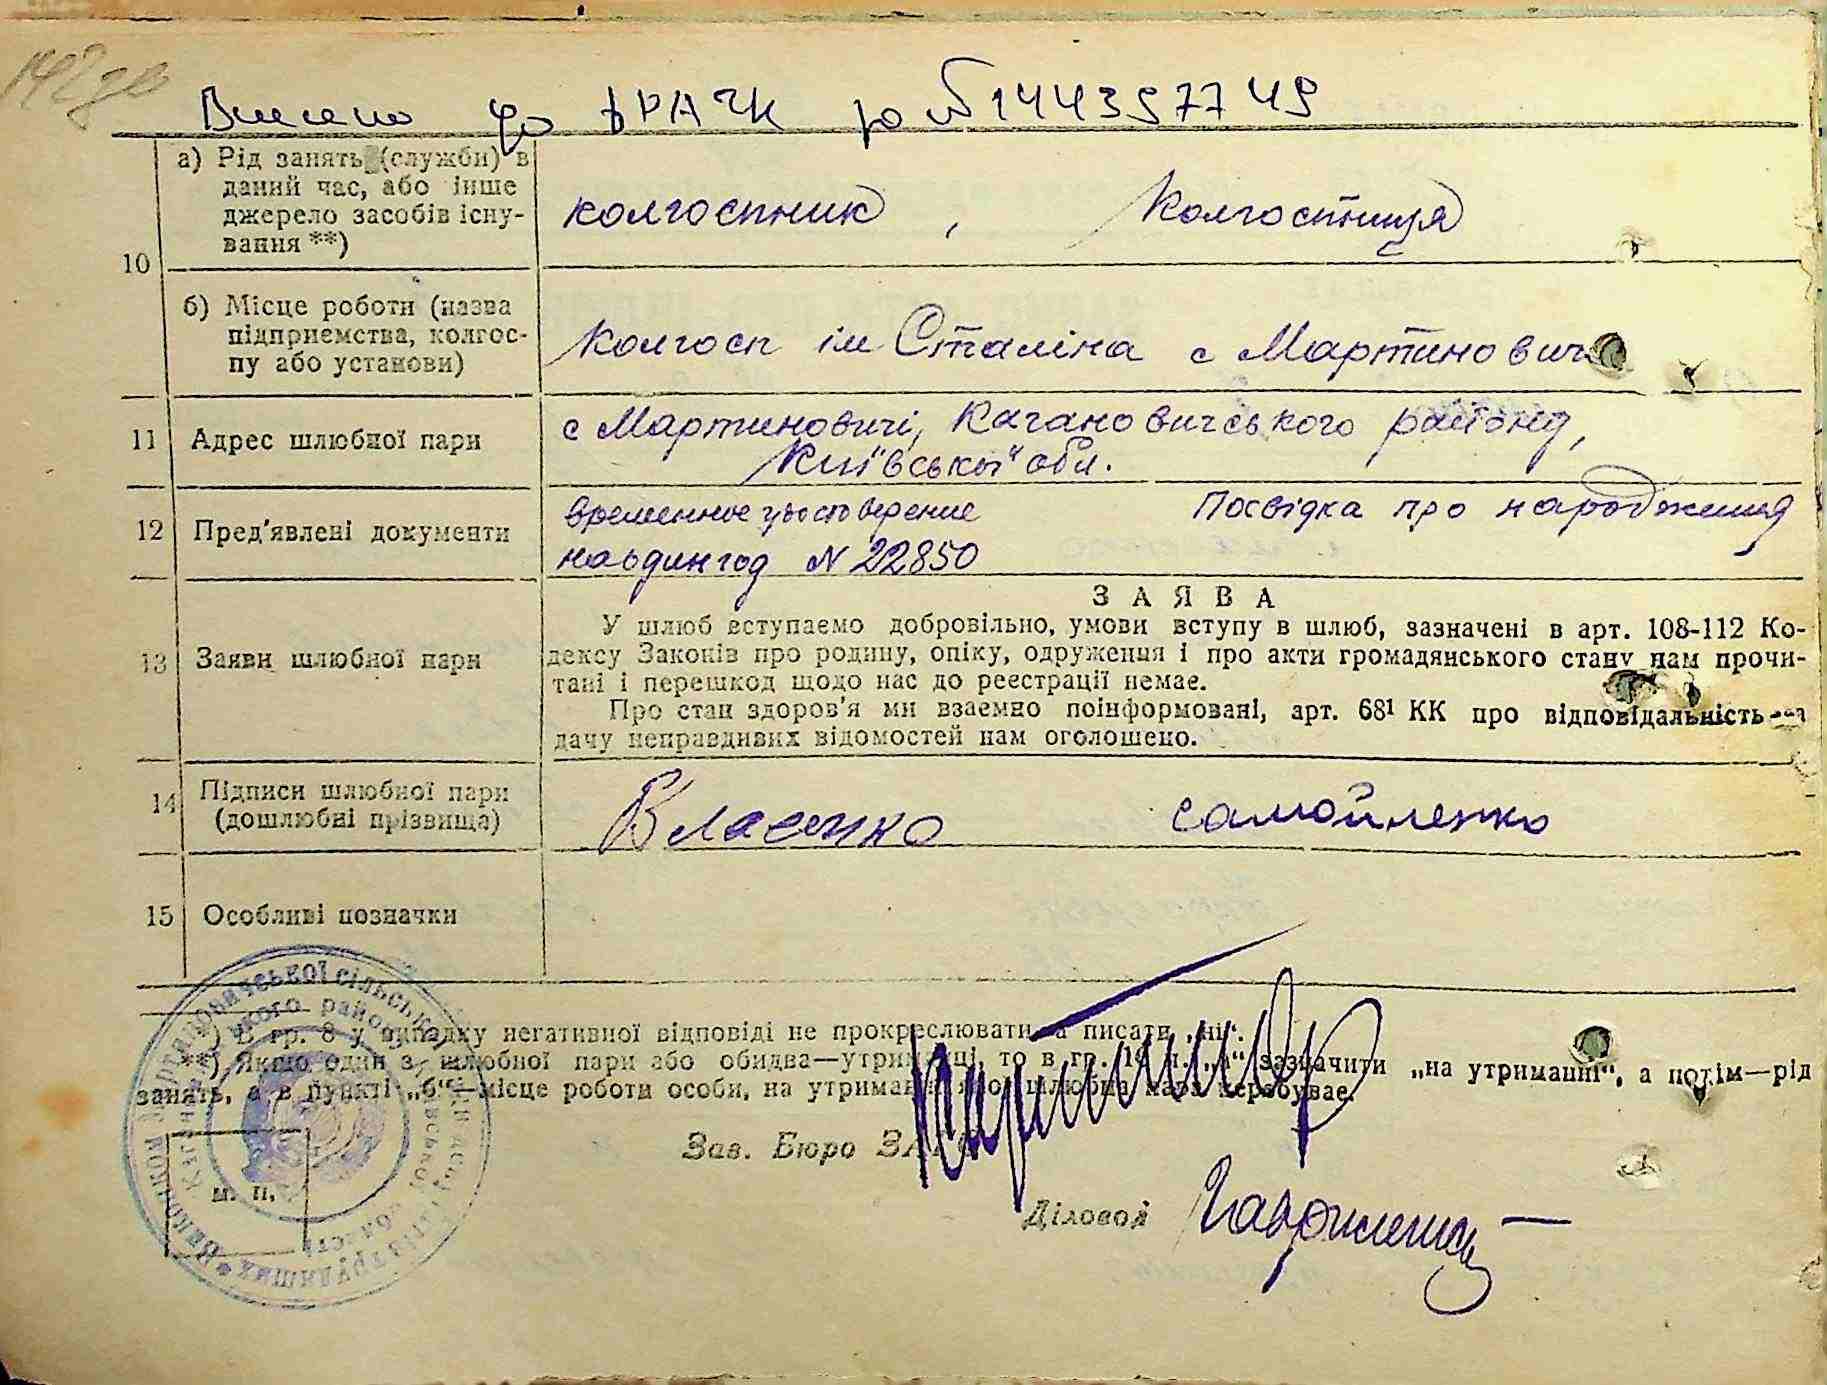 142зв
Внесено до ДРАЦС за №144357749
10
а) Рід занять (служби) в
даний час, або інше
джерело засобів існу-
вання **)
колгоспник, Колгоспниця
б) Місце роботи (назва
підприємства, колгос-
пу або установи)
Колгосп ім Сталіна с Мартинович
11 Адрес шлюбної пари
с Мартиновичі, Кагановичського району,
Київської обл.
12 Пред'явлені документи
временное удостоверение
на один год № 22850
Посвідка про народження
13 Заяви шлюбної пари
ЗАЯВА
У шлюб вступаємо добровільно, умови вступу в шлюб, зазначені в арт. 108-112 Ко-
дексу Законів про родину, опіку, одруження і про акти громадянського стану нам прочи-
тані і перешкод щодо нас до реєстрації немає.
Про стан здоров'я ми взаємно поінформовані, арт. 68¹ КК про відповідальність за
дачу неправдивих відомостей нам оголошено.
14 Підписи шлюбної пари
(дошлюбні прізвища)
Власенко самойленко
15 Особливі позначки
*) В гр. 8 у випадку негативної відповіді не прокреслювати, а писати „ні“.
**) Якщо один з шлюбної пари або обидва—утриманці, то в гр. 10 п. „а“ зазначити „на утриманні“, а потім—рід
занять, а в пункті „б“—місце роботи особи, на утриманні якої шлюбна пара перебуває.
Зав. Бюро ЗАГС
м. п.
Діловод